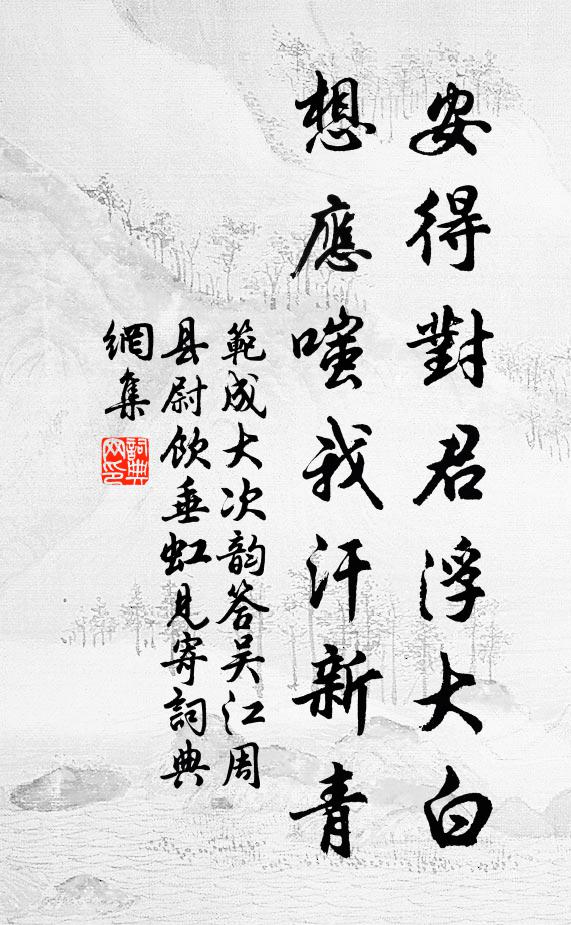 安得對君浮大白
想應嗤我汗新青
範成大次韵答吴江周
县尉飲垂虹見寄詞典
網集
詞典網印